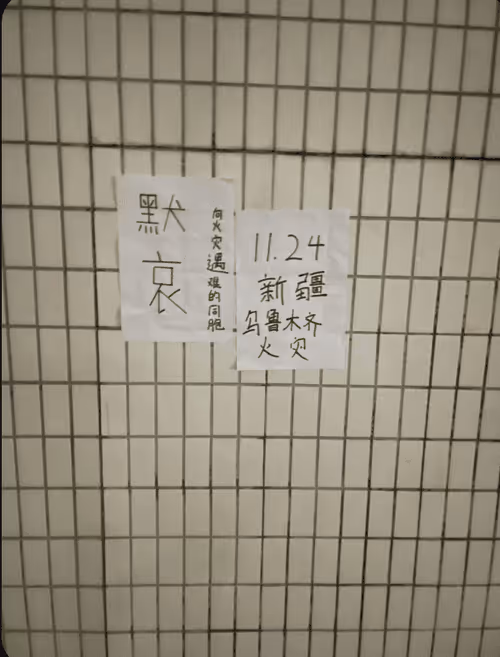 默哀
向火灾遇难的同胞
11.24
新疆
乌鲁木齐
火灾